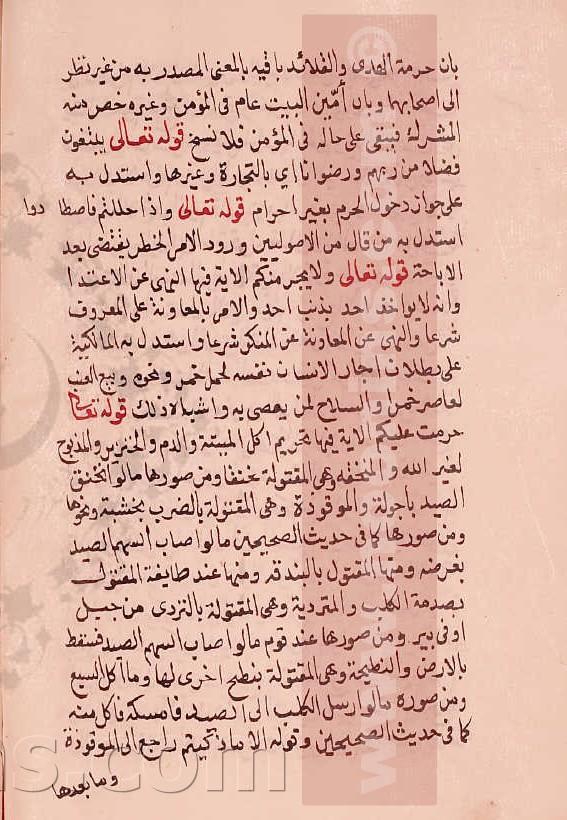 بان حرمة الهدى والقلائد باقيه بالمعنى المصدر به من غير نظر
الى اصحابها وبان أمّين البيت عام فى المؤمن وغيره خص منه
المشرك فيبقى على حاله فى المؤمن فلا نسخ قوله تعالى يبتغون
فضلا من ربهم ورضوانا اي بالتجارة وغيرها واستدل به
على جواز دخول الحرم بغير احرام قوله تعالى واذا حللتم فاصطا دوا
استدل به من قال من الاصوليين ورود الامر الحظر يقتضى بعد
الاباحة قوله تعالى ولا يجرمنّكم الاية فيها النهى عن الاعتدا
وانه لا يواخذ احد بذنب احد والامر بالمعاونة على المعروف
شرعا والنهى عن المعاونة عن المنكر شرعا واستدل به المالكية
على بطلان اجار الانسان نفسه لحمل خمر ونحوه وبيع العنب
لعاصر خمرا والسلاح لمن يعصى به واشباه ذلك قوله تعالى
حرمت عليكم الاية فيها تحريم اكل الميتة والدم والخنزير والمذبوح
لغير الله والمنخنقه وهى المقتولة خنقا ومن صورها ما لو اختنق
الصيد باحولة والموقوذة وهى المقتولة بالضرب بخشبة ونحوها
ومن صورها كما فى حديث الصحيحين ما لو اصاب السهم الصيد
بعرضه ومنها المقتول بالبندقه ومنها عند طايفة المقتول
بصدمة الكلب والمتردية وهى المقتولة بالتردى من جبل
او فى بير ومن صورها عند قوم ما لو اصاب السهم الصيد فسقط
بالارض والنطيحة وهى المقتولة بنطح اخرى لها وما اكل السبع
ومن صوره ما لو ارسل الكلب الى الصيد فامسكه فاكل منه
كما فى حديث الصحيحين وقوله الا ما ذكيتم راجع الى الموقوذة
وما بعدها
s.com
www.